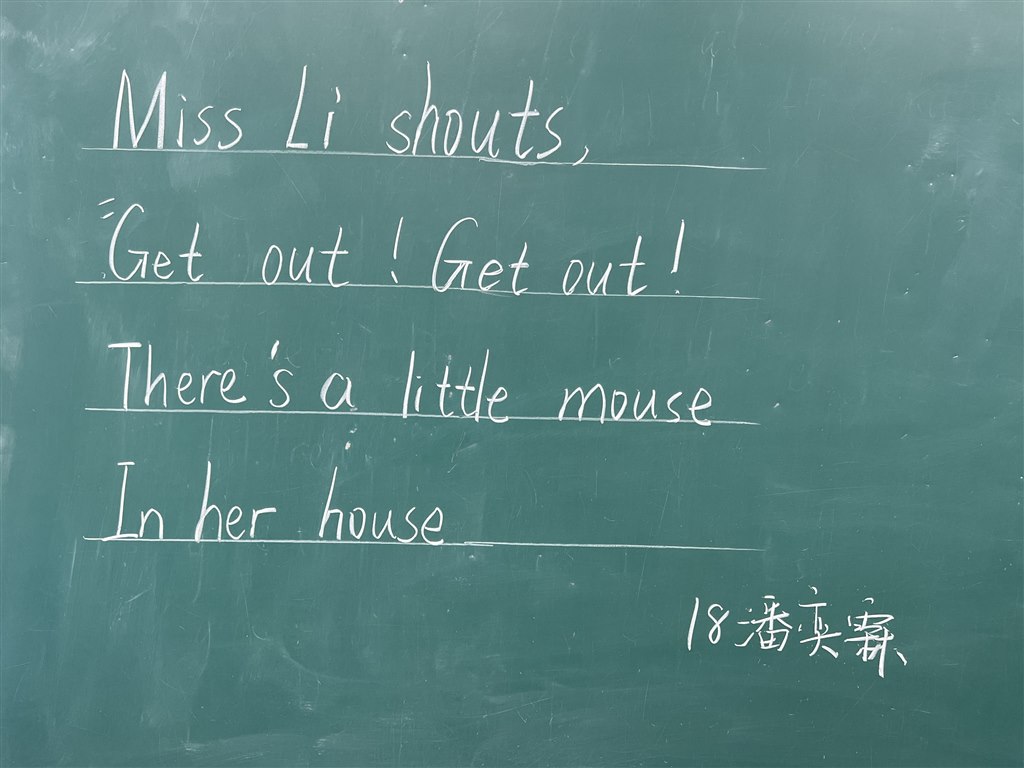 Miss Li shouts,
"Get out! Get out!
There's a little mouse
In her house
18潘奕霖